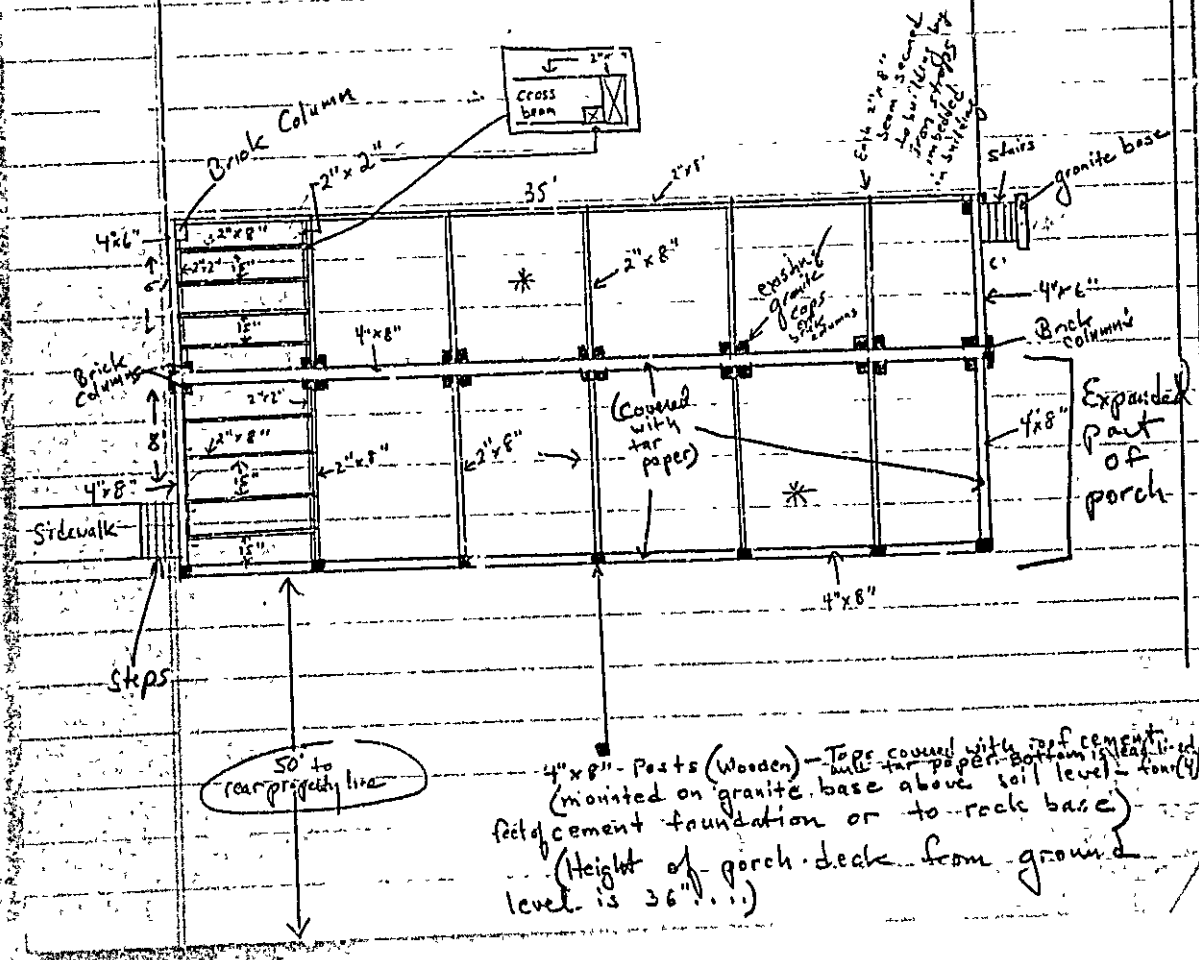 2"x
cross
beam
Brick Column
2" x 2"
Each 2"x8"
beam secured
to building by
iron straps
embedded
in building
stairs
granite base
35'
2"x8'
4"x6"
2"x8"
2"x2"
15"
6'
15"
2"x8"
existing
granite
caps
on
brick
columns
6'
4"x6"
Brick
Columns
4"x8"
Brick
Columns
8'
2"x2"
2"x8"
15"
2"x8"
2"x8"
(covered
with
tar
paper)
4"x8"
Expanded
part
of
porch
4"x8"
Sidewalk
15"
4"x8"
Steps
50' to
rear property line
4"x8" - Posts (Wooden) - Tops covered with roof cement
and tar paper. Bottom is lead-lined
(mounted on granite base above soil level - four (4)
feet of cement foundation or to rock base)
(Height of porch deck from ground
level is 36"....)